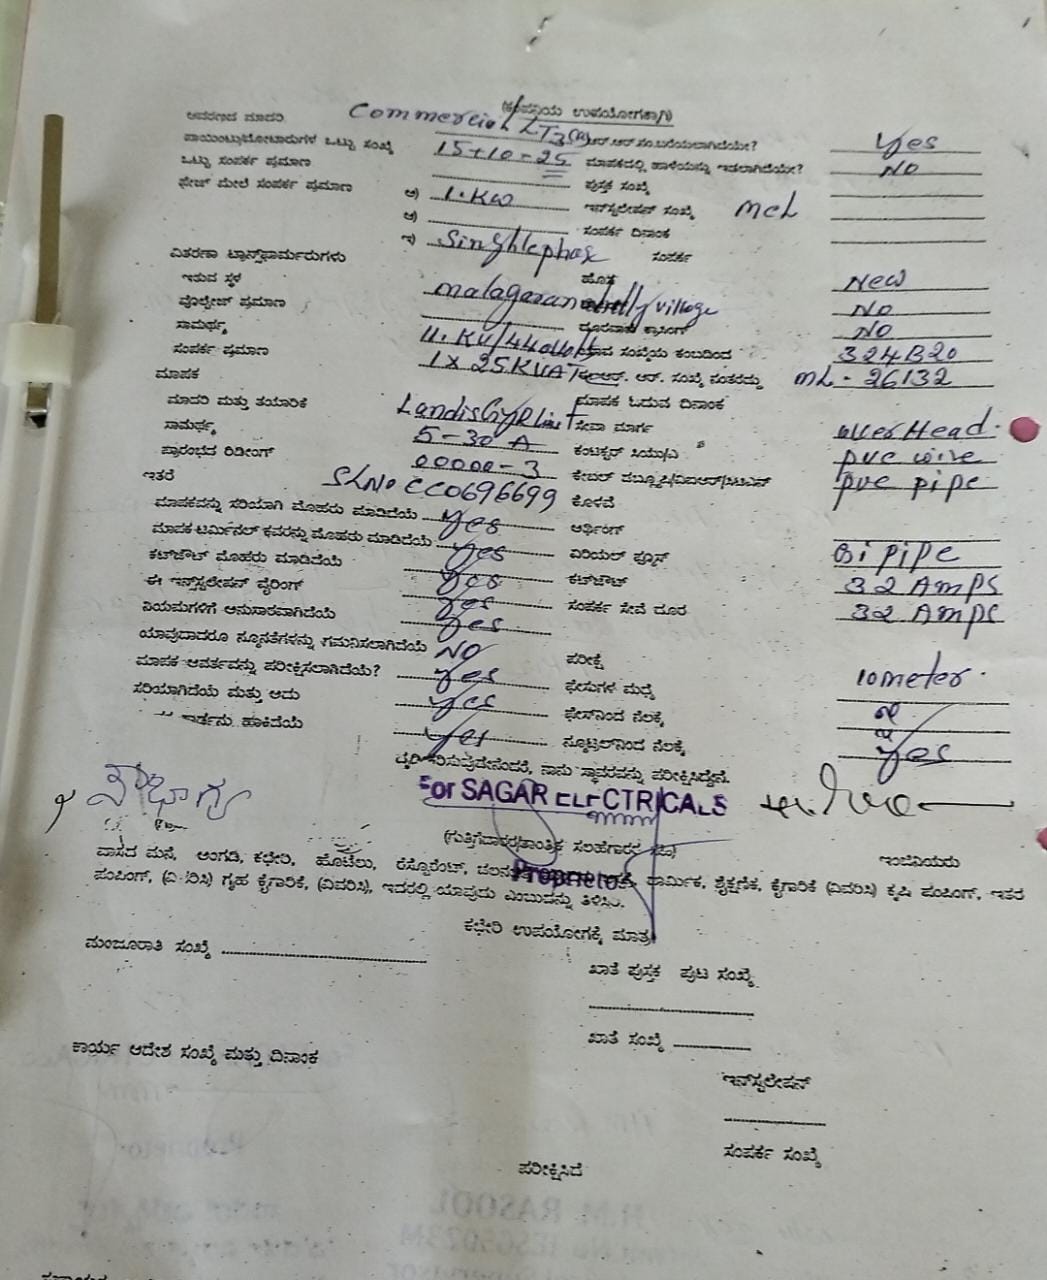 (ಕಂಪನಿಯ ಉಪಯೋಗಕ್ಕಾಗಿ)
ಆವರಣದ ಮಾದರಿ Commercial LT3(a) ಆರ್.ಆರ್ ಸಂ.ಬರೆಯಲಾಗಿದೆಯೇ? yes
ಒಟ್ಟು ಸಂಖ್ಯೆ 15+10-25 ಮಾಪಕದಲ್ಲಿ ಹಾಳೆಯನ್ನು ಇಡಲಾಗಿದೆಯೇ? NO
ಒಟ್ಟು ಸಂಪರ್ಕ ಪ್ರಮಾಣ ಪುಸ್ತಕ ಸಂಖ್ಯೆ
ಫೇಜ್ ಮೇಲೆ ಸಂಪರ್ಕ ಪ್ರಮಾಣ ಅ) 1.KW ಇನ್ಸ್ಟಲೇಷನ್ ಸಂಖ್ಯೆ MCL
ಆ) ಸಂಪರ್ಕ ದಿನಾಂಕ
ಇ) Singhlephase ಸಂಪರ್ಕ
ವಿತರಣಾ ಟ್ರಾನ್ಸ್‌ಫಾರ್ಮರುಗಳು ಹೊಸ New
ಇರುವ ಸ್ಥಳ village No
ವೋಲ್ಟೇಜ್ ಪ್ರಮಾಣ No
ಸಾಮರ್ಥ್ಯ 11.KV/440 ಸಂಖ್ಯೆಯ ಕಂಬದಿಂದ 324B20
ಸಂಪರ್ಕ ಪ್ರಮಾಣ 1x25KVA ಆರ್. ಆರ್. ಸಂಖ್ಯೆ ನಂತರದ್ದು ML-26132
ಮಾಪಕ ಮಾಪಕ ಓದುವ ದಿನಾಂಕ
ಮಾದರಿ ಮತ್ತು ತಯಾರಿಕೆ LandisGYR ಸೇವಾ ಮಾರ್ಗ overHead.
ಸಾಮರ್ಥ್ಯ 5-30 A ಕಂಡಕ್ಟರ್ pvc wire
ಪ್ರಾರಂಭದ ರಿಡೀಂಗ್ 00000-3 ಕೇಬಲ್ pvc pipe
ಇತರೆ SLNo CC0696699 ಕೊಳವೆ
ಮಾಪಕವನ್ನು ಸರಿಯಾಗಿ ಮೊಹರು ಮಾಡಿದೆಯೆ yes ಅರ್ಥಿಂಗ್
ಮಾಪಕ ಟರ್ಮಿನಲ್ ಕವರನ್ನು ಮೊಹರು ಮಾಡಿದೆಯೆ yes ಏರಿಯಲ್ ಫ್ಯೂಸ್ Gi pipe
ಕಟ್‌ಔಟ್ ಮೊಹರು ಮಾಡಿದೆಯೆ yes ಕಟ್‌ಔಟ್ 32 Amps
ಈ ಇನ್ಸ್ಟಲೇಷನ್ ವೈರಿಂಗ್ yes ಸಂಪರ್ಕ ಸೇವೆ ದೂರ 32 Amps
ನಿಯಮಗಳಿಗೆ ಅನುಸಾರವಾಗಿದೆಯೆ yes
ಯಾವುದಾದರೂ ನ್ಯೂನತೆಗಳನ್ನು ಗಮನಿಸಲಾಗಿದೆಯೆ NO ಪರೀಕ್ಷೆ
ಮಾಪಕ ಆವರ್ತವನ್ನು ಪರೀಕ್ಷಿಸಲಾಗಿದೆಯೆ? yes ಫೇಸುಗಳ ಮಧ್ಯೆ 10meter.
ಸರಿಯಾಗಿದೆಯೆ ಮತ್ತು ಅದು yes ಫೇಸ್‌ನಿಂದ ನೆಲಕ್ಕೆ
ಹಾಕಿದೆಯೆ yes ನ್ಯೂಟ್ರಲ್‌ನಿಂದ ನೆಲಕ್ಕೆ yes
ನಾನು ಸ್ಥಾವರವನ್ನು ಪರೀಕ್ಷಿಸಿದ್ದೇನೆ.
For SAGAR ELECTRICALS
(ಗುತ್ತಿಗೆದಾರರ/ತಾಂತ್ರಿಕ ಸಲಹೆಗಾರರ ಸಹಿ) ಇಂಜಿನಿಯರು
Proprietor
ವಾಸದ ಮನೆ, ಅಂಗಡಿ, ಕಛೇರಿ, ಹೊಟೇಲು, ರೆಸ್ಟೊರೆಂಟ್, ಧಾರ್ಮಿಕ, ಶೈಕ್ಷಣಿಕ, ಕೈಗಾರಿಕೆ (ವಿವರಿಸಿ) ಕೃಷಿ ಪಂಪಿಂಗ್, ಇತರ
ಪಂಪಿಂಗ್, (ವಿವರಿಸಿ) ಗೃಹ ಕೈಗಾರಿಕೆ, (ವಿವರಿಸಿ), ಇದರಲ್ಲಿ ಯಾವುದು ಎಂಬುದನ್ನು ತಿಳಿಸಿ.
ಕಛೇರಿ ಉಪಯೋಗಕ್ಕೆ ಮಾತ್ರ
ಮಂಜೂರಾತಿ ಸಂಖ್ಯೆ
ಖಾತೆ ಪುಸ್ತಕ ಪುಟ ಸಂಖ್ಯೆ
ಖಾತೆ ಸಂಖ್ಯೆ
ಕಾರ್ಯ ಆದೇಶ ಸಂಖ್ಯೆ ಮತ್ತು ದಿನಾಂಕ
ಇನ್ಸ್ಟಲೇಷನ್
ಸಂಪರ್ಕ ಸಂಖ್ಯೆ
ಪರೀಕ್ಷಿಸಿದೆ